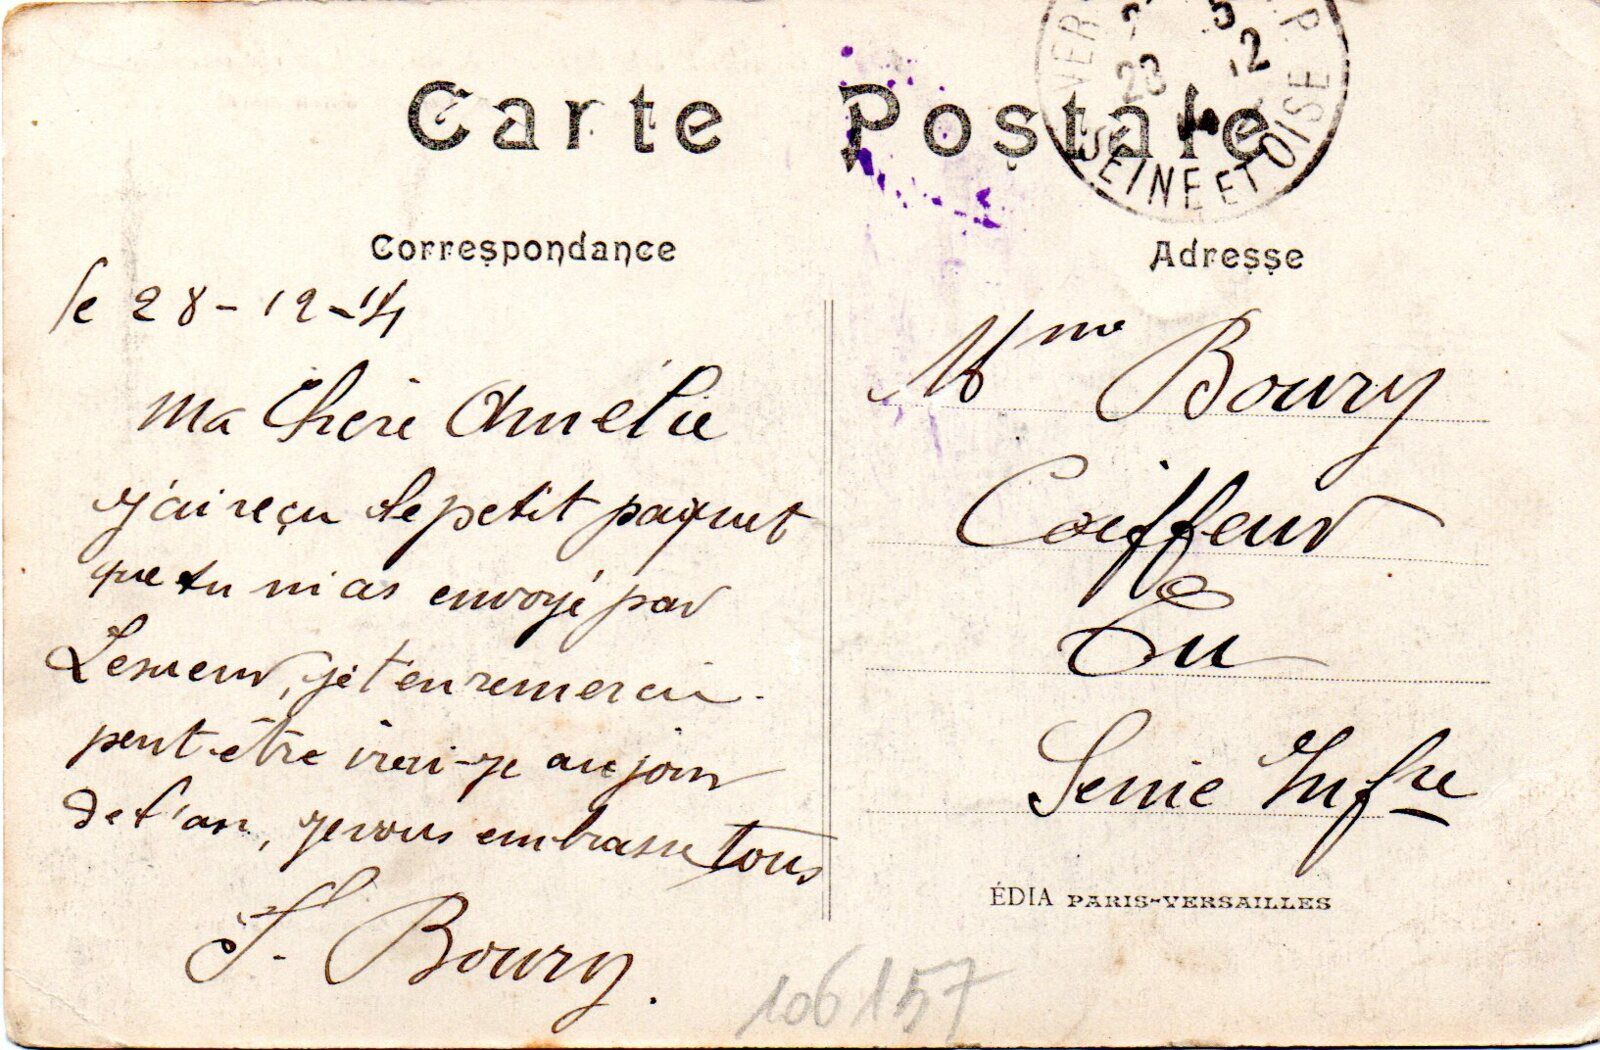 Carte Postale
28 12
SEINE ET OISE
Correspondance
Adresse
le 28-12-14
Ma Chère Amélie
j'ai reçu le petit paquet
que tu m'as envoyé par
Lesueur, je t'en remerci.
peut-être irai-je au jour
de l'an, je vous embrasse tous
Boury.
Mme Boury
Coiffeur
Eu
Seine Infre
ÉDIA PARIS-VERSAILLES
106157